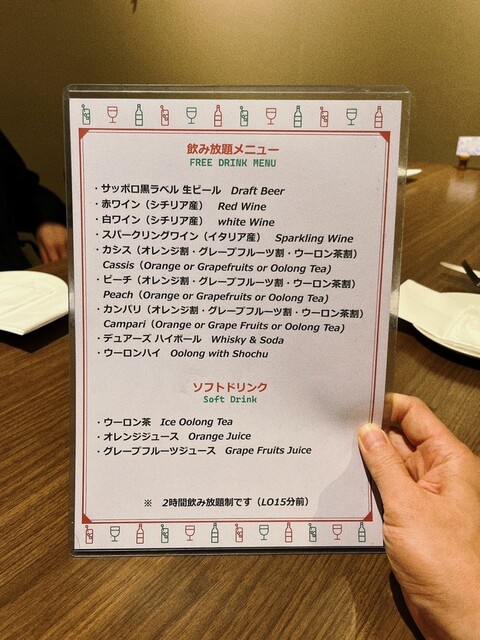 飲み放題メニュー
FREE DRINK MENU
・サッポロ黒ラベル 生ビール Draft Beer
・赤ワイン（シチリア産） Red Wine
・白ワイン（シチリア産） white Wine
・スパークリングワイン（イタリア産） Sparkling Wine
・カシス（オレンジ割・グレープフルーツ割・ウーロン茶割）
Cassis（Orange or Grapefruits or Oolong Tea)
・ピーチ（オレンジ割・グレープフルーツ割・ウーロン茶割）
Peach（Orange or Grapefruits or Oolong Tea)
・カンパリ（オレンジ割・グレープフルーツ割・ウーロン茶割）
Campari（Orange or Grape Fruits or Oolong Tea)
・デュアーズ ハイボール Whisky & Soda
・ウーロンハイ Oolong with Shochu
ソフトドリンク
Soft Drink
・ウーロン茶 Ice Oolong Tea
・オレンジジュース Orange Juice
・グレープフルーツジュース Grape Fruits Juice
※ 2時間飲み放題制です（LO15分前）